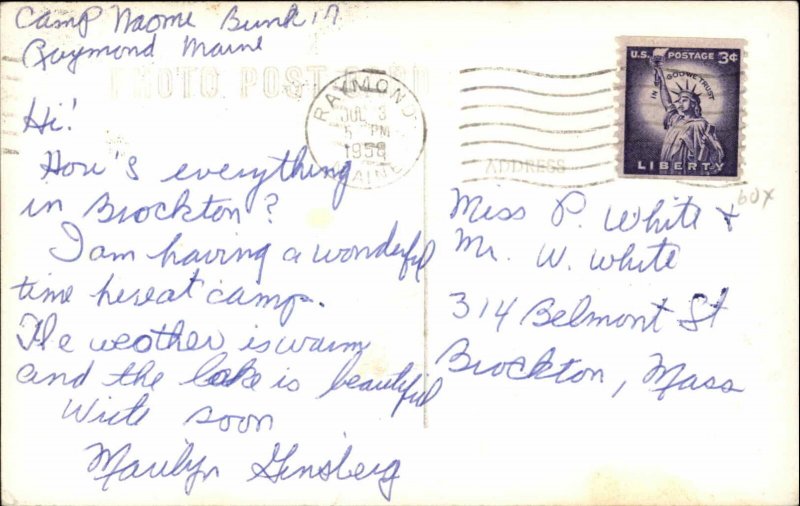 Camp Naome Bunk 17
Raymond Maine
PHOTO POST CARD
Hi!
How's everything
in Brockton?
I am having a wonderful
time hereat camp.
The weather is warm
and the lake is beautiful
Write soon
Marilyn Ginsberg
RAYMOND
JUL 3
5 PM
1958
MAINE
U.S. POSTAGE 3¢
IN GOD WE TRUST
LIBERTY
ADDRESS
60x
Miss P. White &
Mr. W. White
314 Belmont St
Brockton, Mass